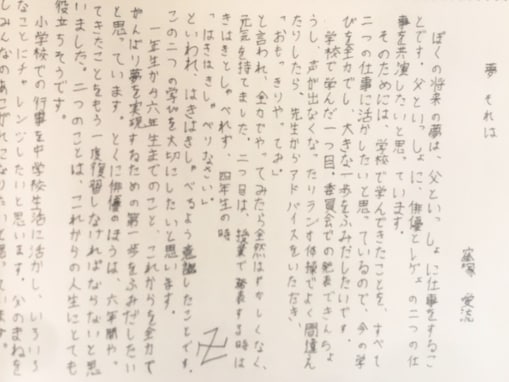 夢 それは
窪塚 愛流
ぼくの将来の夢は、父といっしょに仕事をするこ
とです。父といっしょに、俳優とレゲェの二つの仕
事を共演したいと思っています。
そのためには、学校で学んできたことを、すべて
二つの仕事に活かしたいと思っているので、今の学
びを全力でし、大きな一歩をふみだしたいです。
学校で学んだ一つ目。委員会での発表できんちょ
うし、声が出なくなったりラジオ体操でよく間違え
たりしたら、先生からアドバイスをいただき、
「おもいきりやってみ」
と言われ、全力でやってみたら全然はずかしくなく、
元気を持てました。二つ目は、授業で発表する時は
きはきとしゃべれず、四年生の時
「はきはきしゃべりなさい」
といわれ、はきはきしゃべるよう意識したことです。
この二つの学びを大切にしたいと思います。
一年生から六年生までのこと、これからを全力で
がんばり夢を実現するための第一歩をふみだしたい
と思っています。とくに俳優のほうは、六年間や
てきたことをもう一度復習しなければならないと思
いました。二つのことは、これからの人生にとても
役立ちそうです。
小学校での行事を中学校生活に活かし、いろいろ
なことにチャレンジしたいと思います。父のまねを
卍